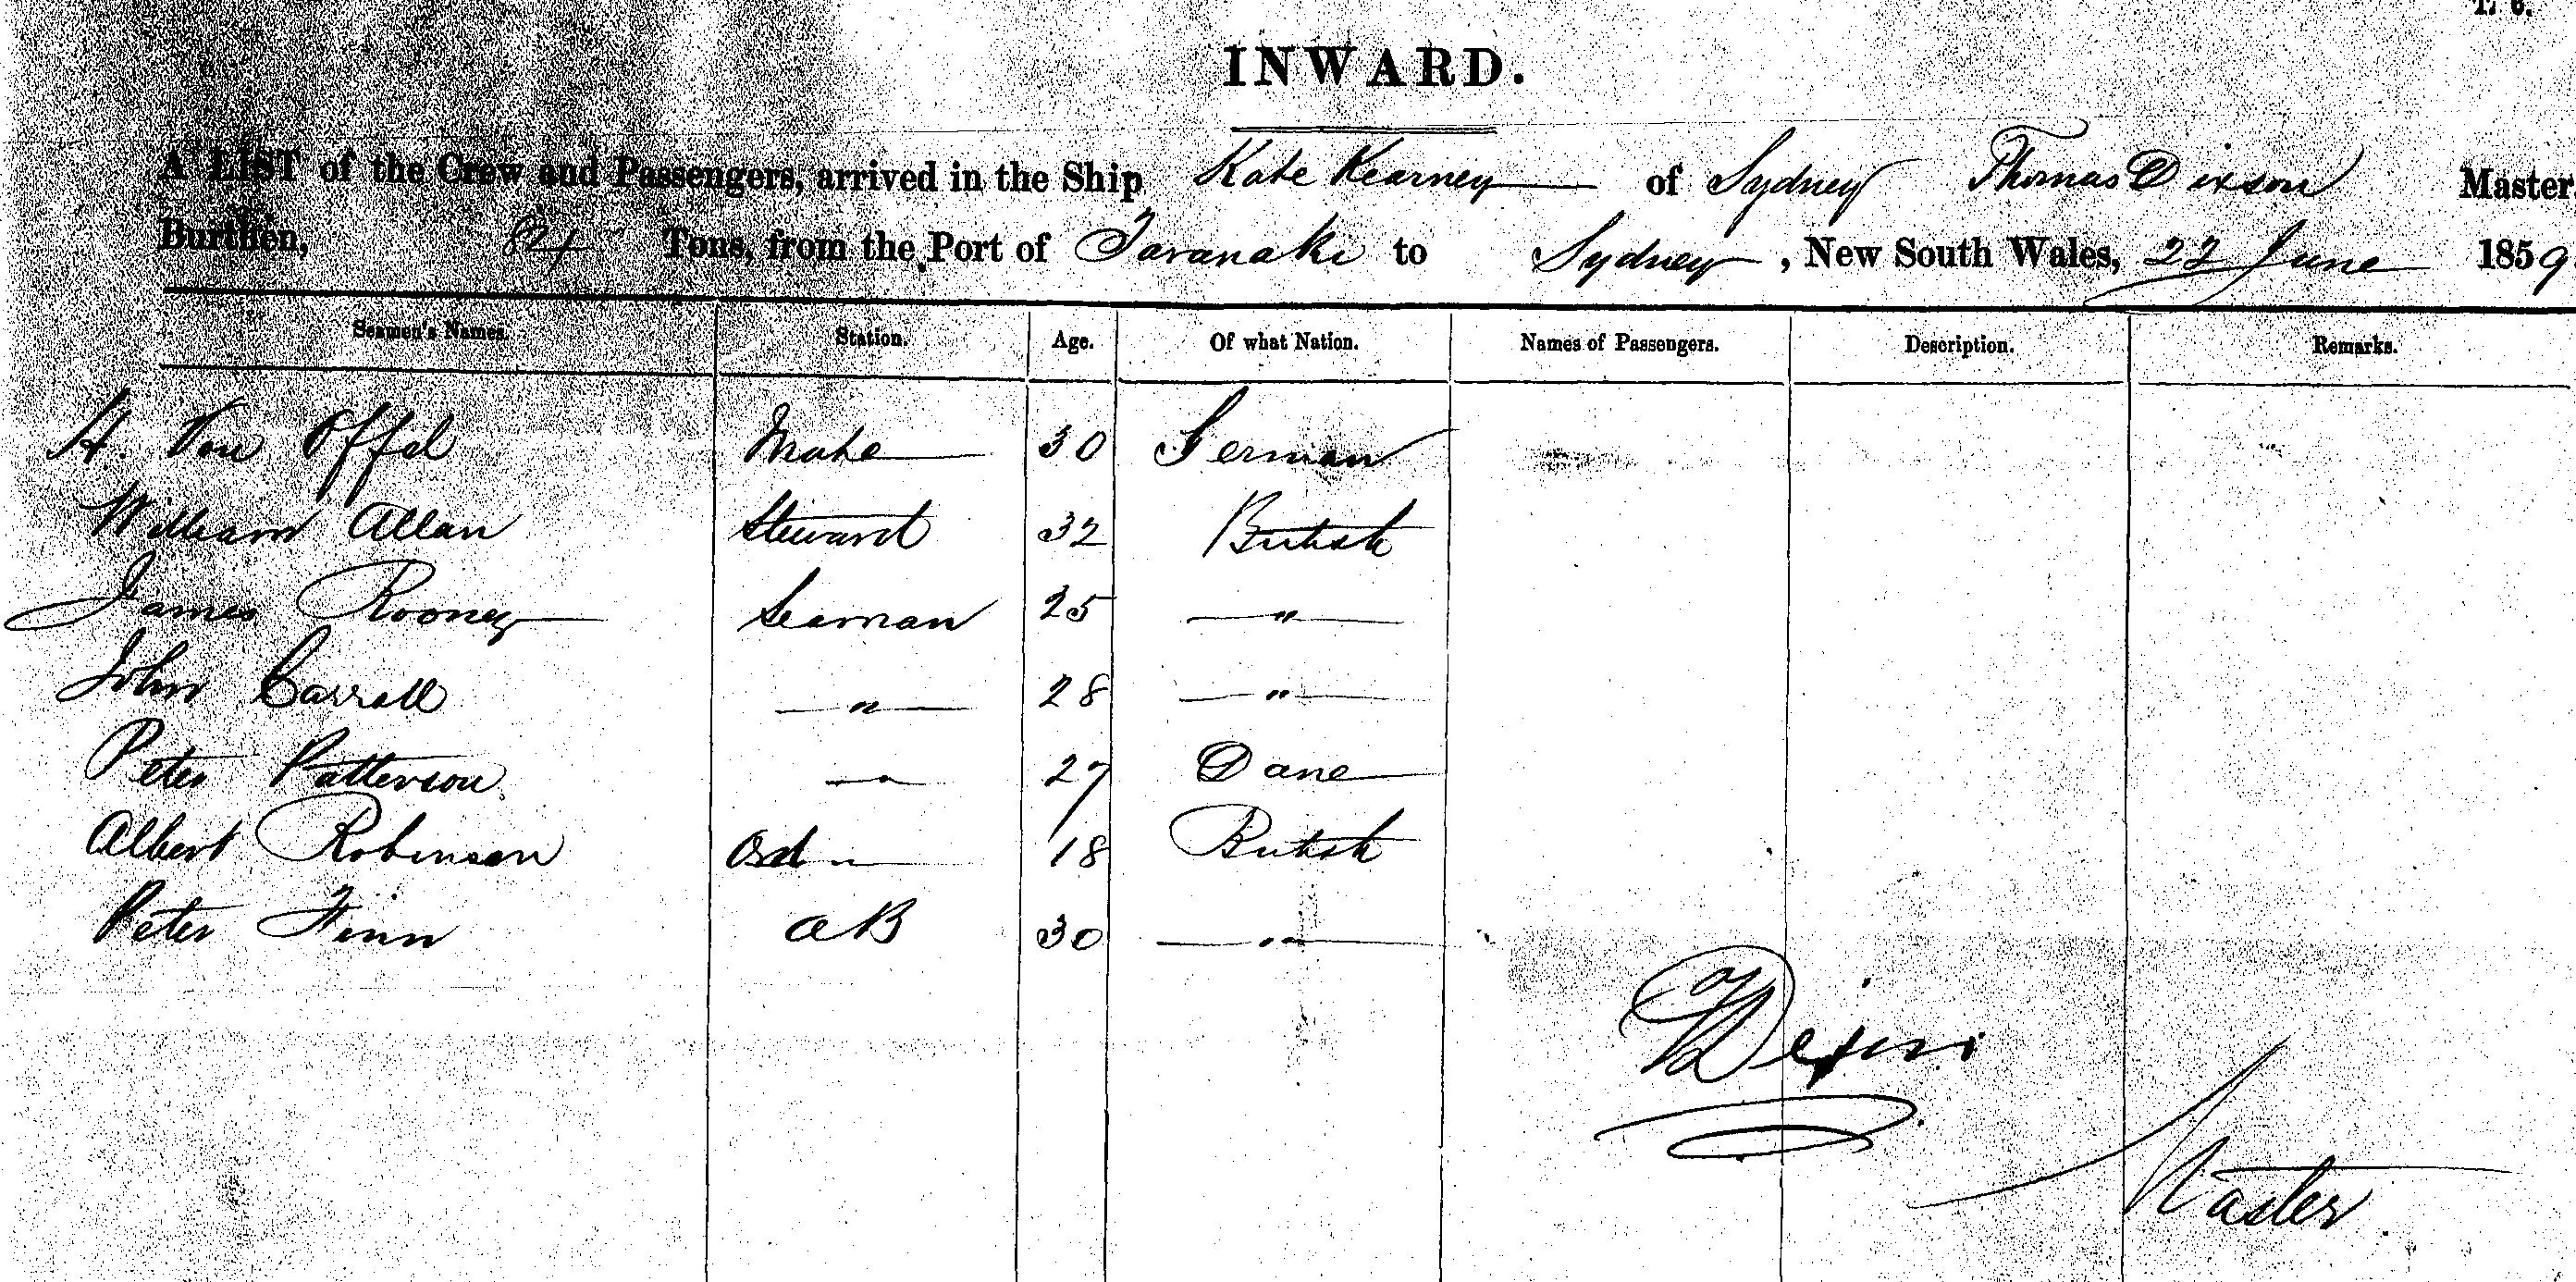 INWARD.
A LIST of the Crew and Passengers, arrived in the Ship Kate Kearney of Sydney Thomas Dixson Master
Burthen, 84 Tons, from the Port of Taranaki to Sydney, New South Wales, 22 June 1859
Seamen's Names. Station. Age. Of what Nation. Names of Passengers. Description. Remarks.
H. Von Offel Mate 30 German
William Allan Steward 32 British
James Rooney Seaman 25 "
John Carroll " 28 "
Peter Patterson " 27 Dane
Albert Robinson Ord " 18 British
Peter Finn AB 30 "
Master